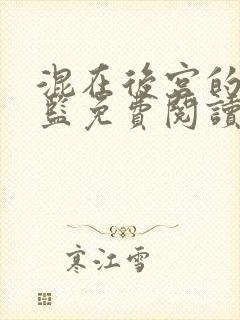 混在後宮的
監免費閱讀
寒江雪